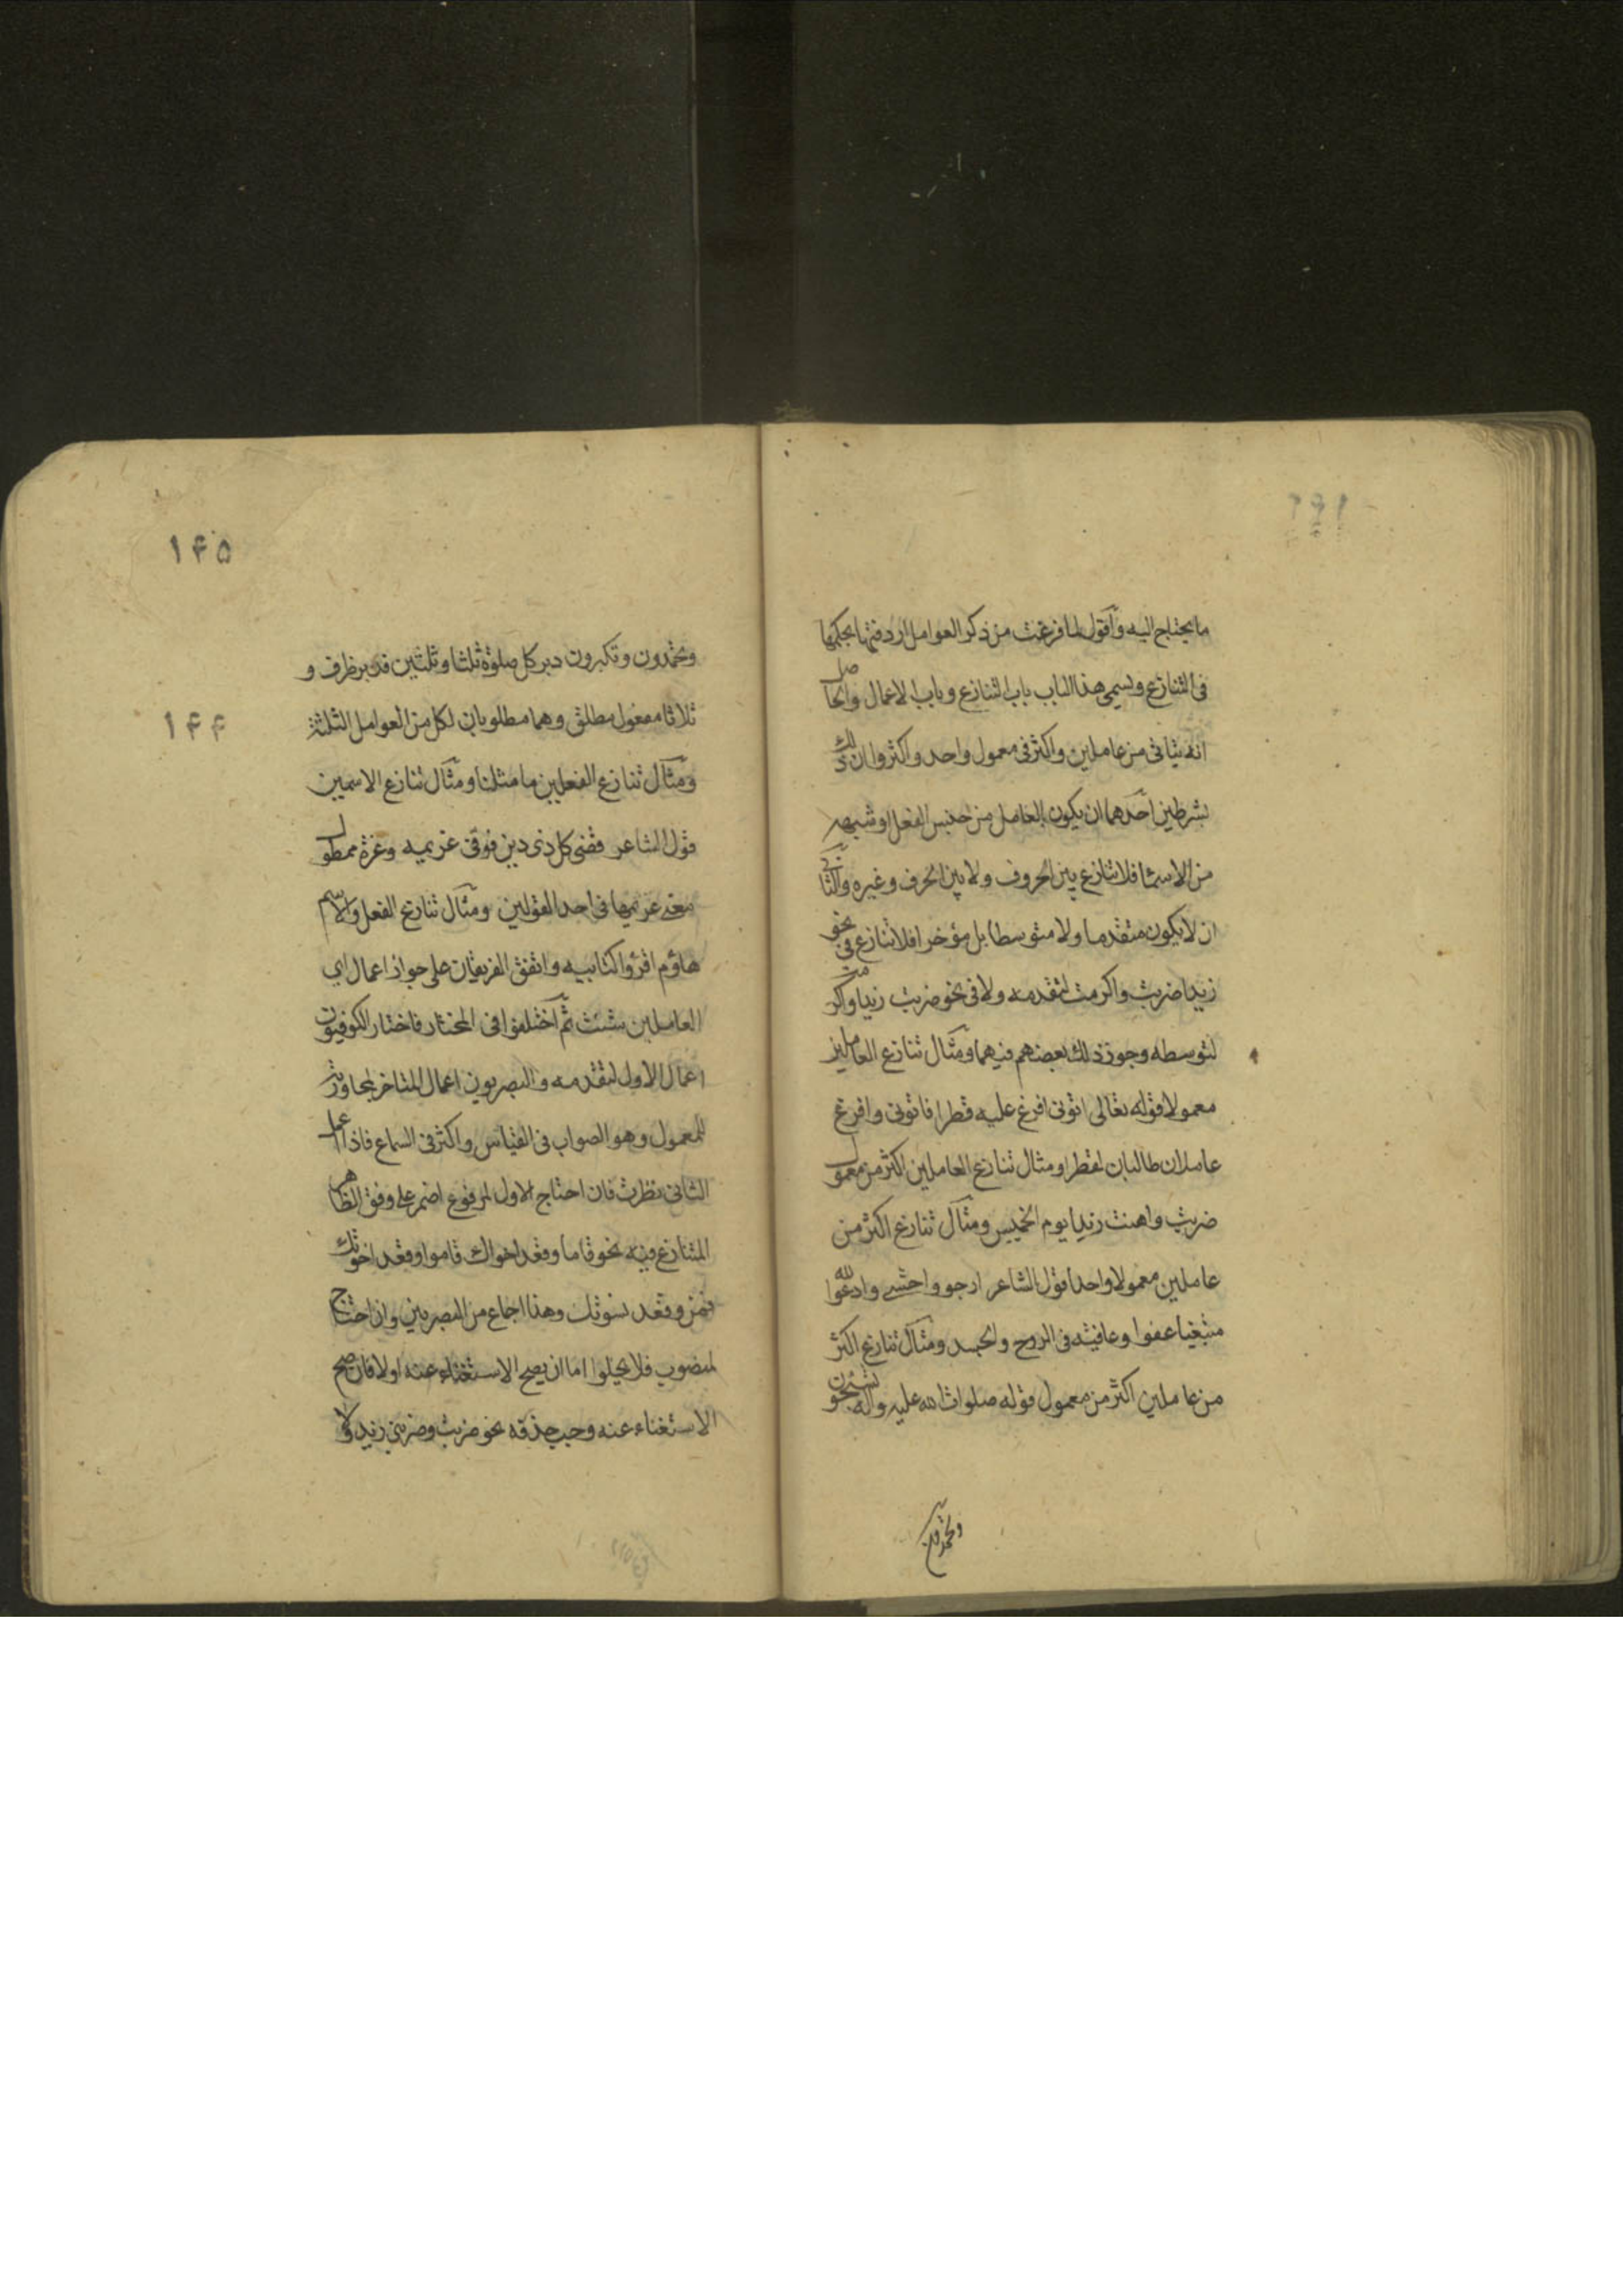 ما يحتاج اليه واقول لما فرغت من ذكر العوامل اردفتها بحكمها
فى التنازع ويسمى هذا الباب باب التنازع وباب الاعمال والحاصل
انه يتاتى من عاملين واكثر فى معمول واحد واكثر وان ذلك
بشرطين احدهما ان يكون العامل من جنس الفعل او شبهه
من الاسماء فلا تنازع بين الحروف ولا بين الحرف وغيره والثانى
ان لا يكون متقدما ولا متوسطا بل مؤخرا فلا تنازع فى نحو
زيدا ضربت واكرمت لتقدمه ولا فى نحو ضربت زيدا واكرمت
لتوسطه وجوز ذلك بعضهم فيهما ومثال تنازع العاملين
معمولا قوله تعالى اتونى افرغ عليه قطرا فاتونى وافرغ
عاملان طالبان لقطرا ومثال تنازع العاملين اكثر من معمول
ضربت واهنت زيدا يوم الخميس ومثال تنازع اكثر من
عاملين معمولا واحدا قول الشاعر ارجو واخشى وادعوا الله
مبتغيا عفوا وعافية فى الروح والجسد ومثال تنازع اكثر
من عاملين اكثر من معمول قوله صلوات الله عليه واله تسبحون
وتحمدون
١٤٥
وتحمدون وتكبرون دبر كل صلوة ثلثا وثلثين فدبر ظرف و
ثلاثا مفعول مطلق وهما مطلوبان لكل من العوامل الثلثة
١٤٤
ومثال تنازع الفعلين ما مثلنا ومثال تنازع الاسمين
قول الشاعر قضى كل ذى دين فوفى غريمه وعزة ممطول
معنى غريمها فى احد القولين ومثال تنازع الفعل والاسم
هاؤم اقرؤا كتابيه واتفق الفريقان على جواز اعمال اى
العاملين شئت ثم اختلفوا فى المختار فاختار الكوفيون
اعمال الاول لتقدمه والبصريون اعمال المتاخر لمجاورته
للمعمول وهو الصواب فى القياس واكثر فى السماع فاذا اعمل
الثانى نظرت فان احتاج الاول لمرفوع اضمر على وفق الظاهر
المتنازع فيه نحو قاما وقعد اخواك قاموا وقعد اخوتك
قمن وقعد نسوتك وهذا اجماع من البصريين وان احتاج
لمنصوب فلا يخلوا اما ان يصح الاستغناء عنه اولا فان صح
الاستغناء عنه وجب حذفه نحو ضربت وضربنى زيد ولا